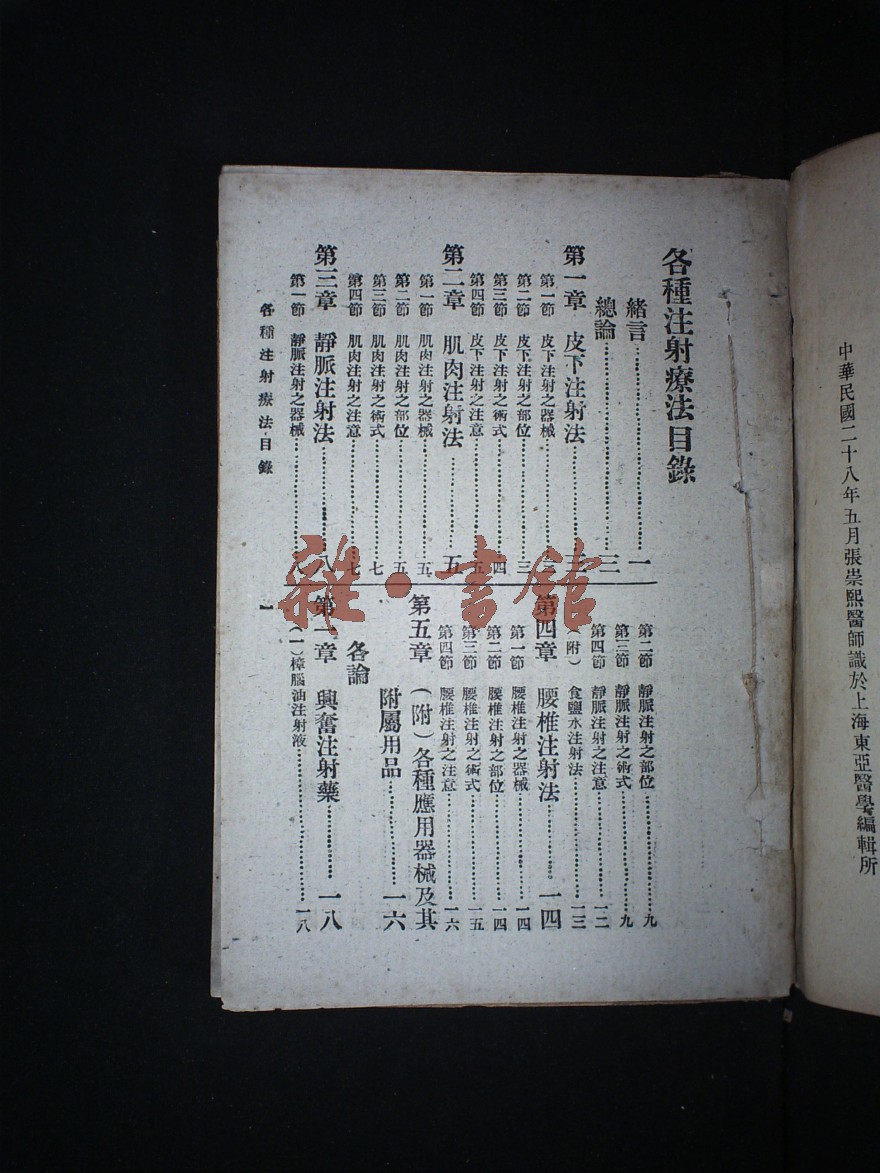 中華民國二十八年五月張崇熙醫師識於上海東亞醫學編輯所
各種注射療法目錄
緒言……一
總論……三
第一章 皮下注射法……
第一節 皮下注射之器械……
第二節 皮下注射之部位……三
第三節 皮下注射之術式……四
第四節 皮下注射之注意……五
第二章 肌肉注射法……五
第一節 肌肉注射之器械……五
第二節 肌肉注射之部位……五
第三節 肌肉注射之術式……七
第四節 肌肉注射之注意……七
第三章 靜脈注射法……八
第一節 靜脈注射之器械……八
第二節 靜脈注射之部位……九
第三節 靜脈注射之術式……九
第四節 靜脈注射之注意……一二
(附) 食鹽水注射法……一三
第四章 腰椎注射法……一四
第一節 腰椎注射之器械……一四
第二節 腰椎注射之部位……一四
第三節 腰椎注射之術式……一五
第四節 腰椎注射之注意……一六
第五章 (附)各種應用器械及其
附屬用品……一六
各論
第一章 興奮注射藥……一八
(一)樟腦油注射液……一八
各種注射療法目錄
一
雜·書館